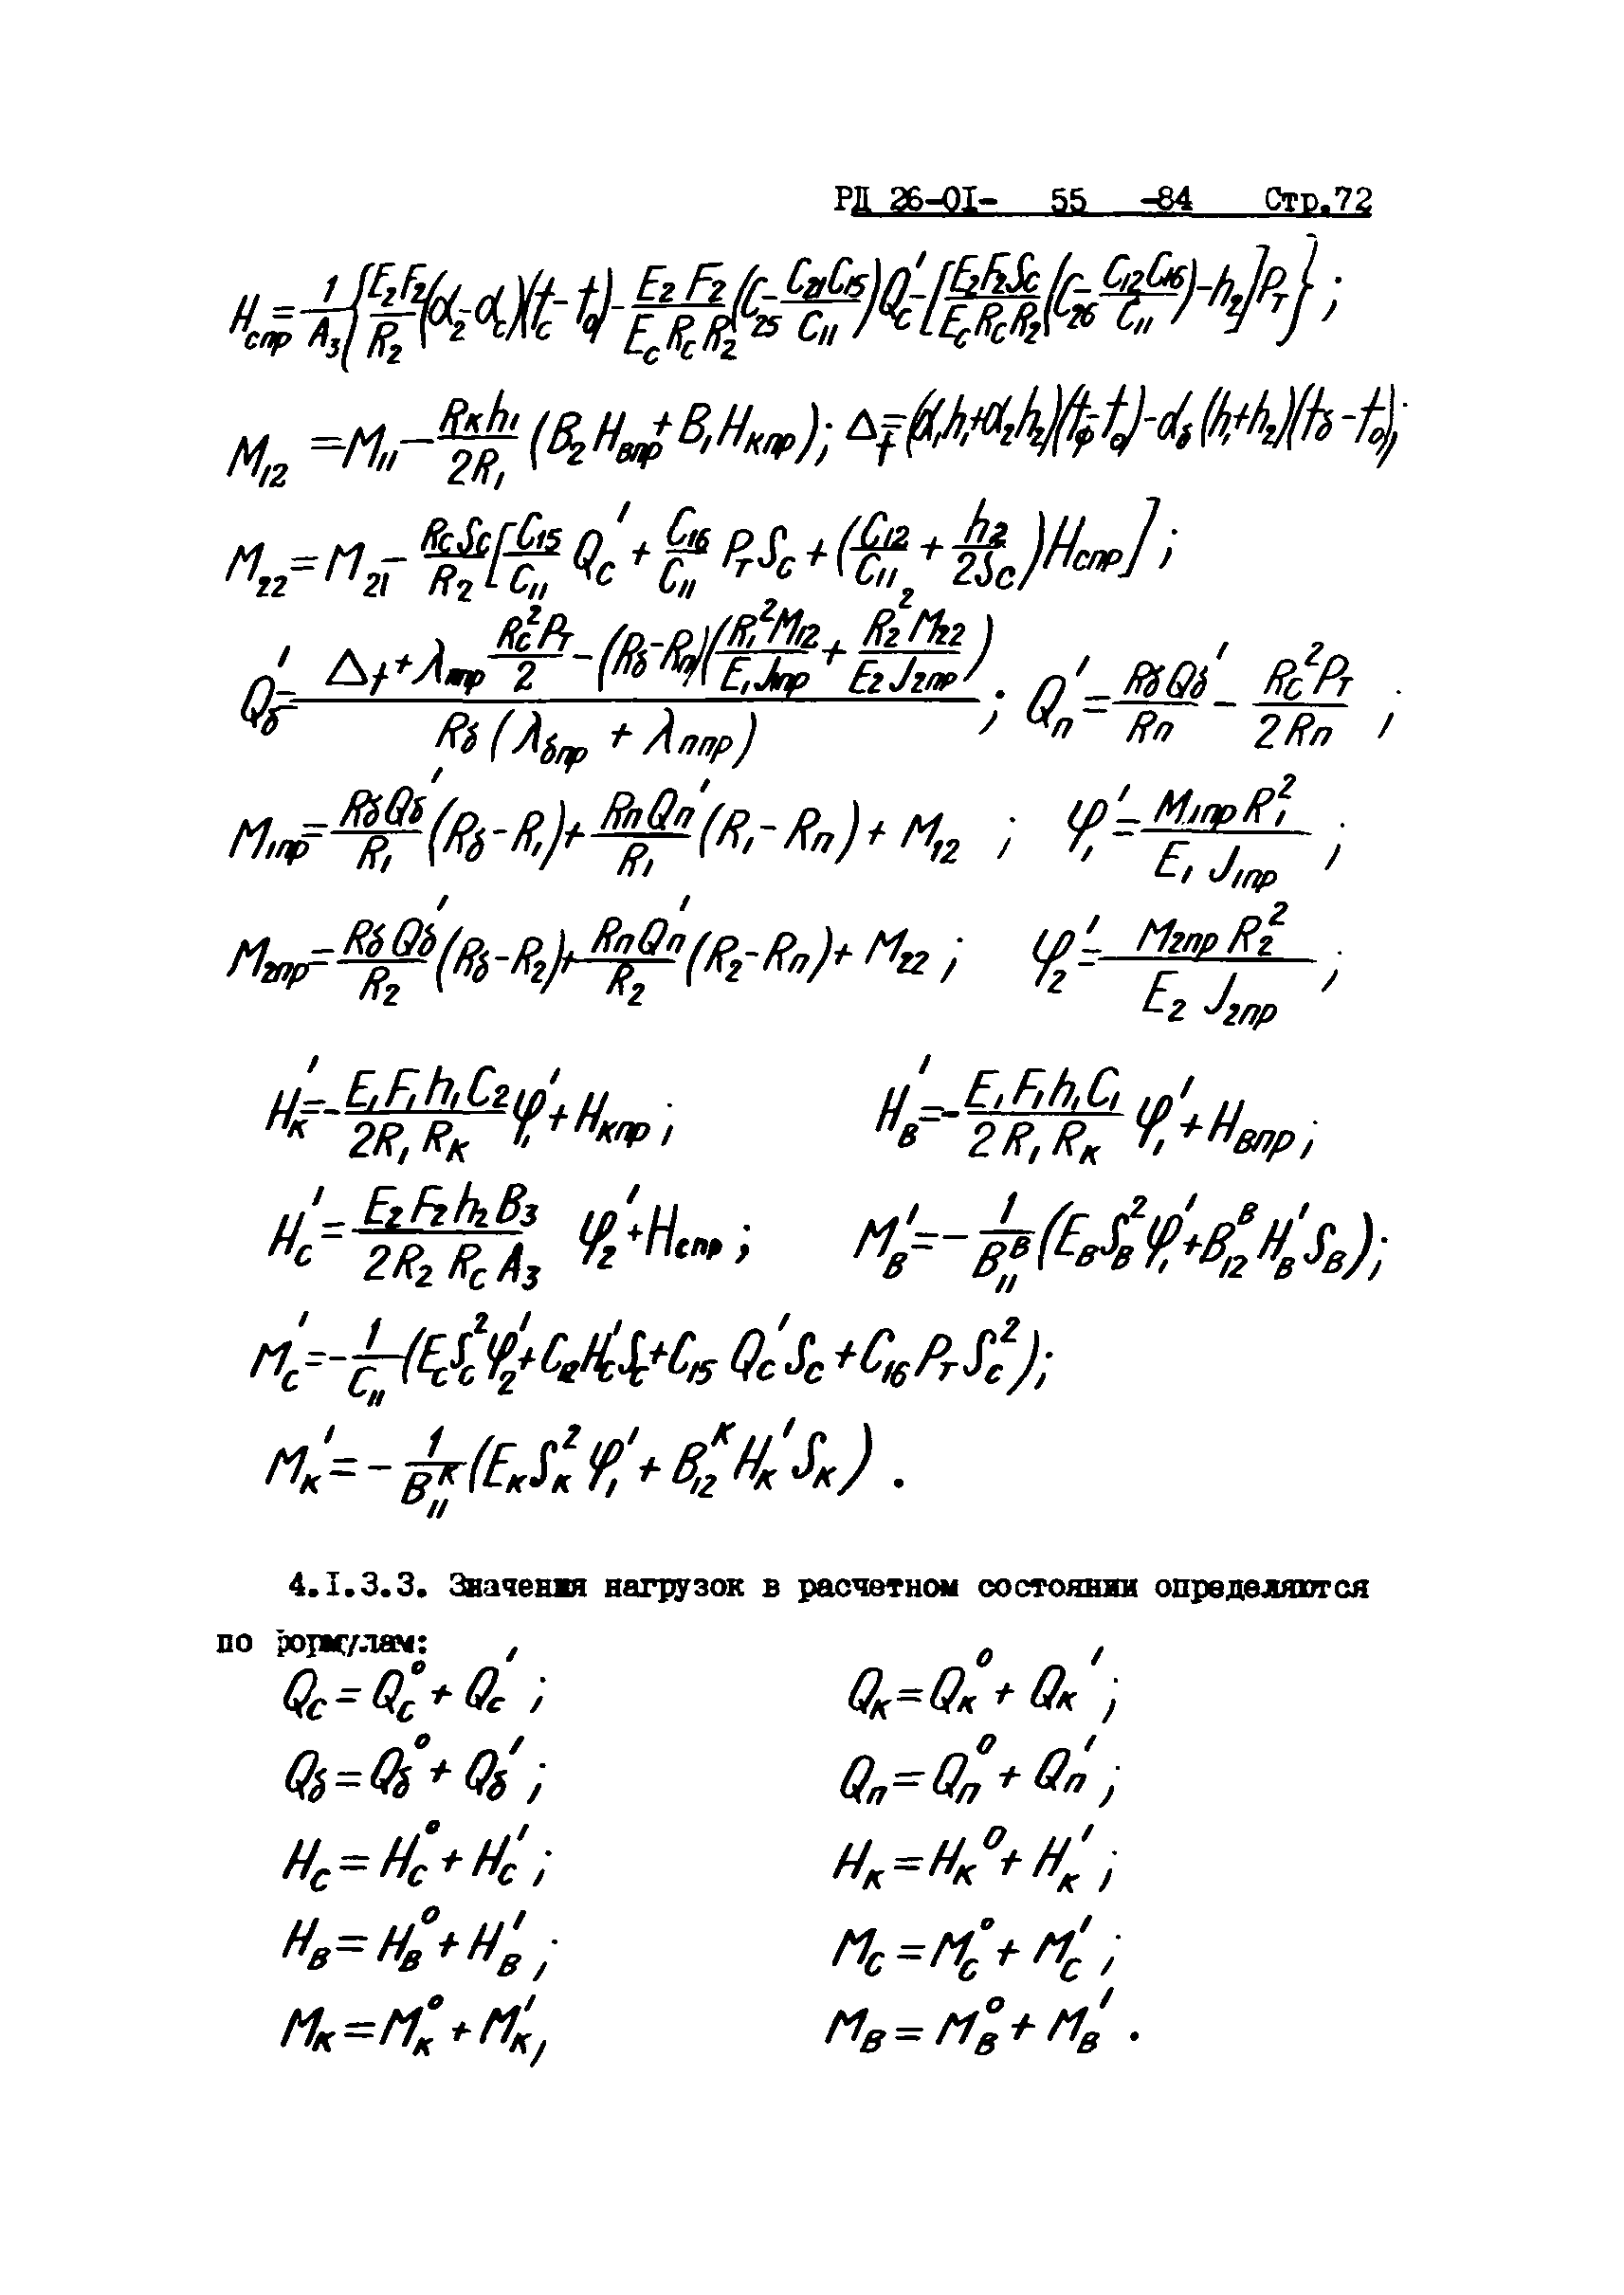 РД 26-01- 55 -84 Стр.72
H_{спр} = \frac{1}{A_3}\left\{\frac{E_2F_2}{R_2}(α_2-α_c)(t_c-t_0)-\frac{E_2F_2}{E_cR_cR_2}\left(C_{25}-\frac{C_{21}C_{15}}{C_{11}}\right)Q_c'-\left[\frac{E_2F_2S_c}{E_cR_cR_2}\left(C_{26}-\frac{C_{12}C_{16}}{C_{11}}\right)-h_2\right]P_т\right\};
M_{12} = M_{11}-\frac{R_кh_1}{2R_1}(B_2H_{впр}+B_1H_{кпр}); Δ_t=(α_1h_1+α_2h_2)(t_ф-t_0)-α_б(h_1+h_2)(t_б-t_0);
M_{22} = M_{21}-\frac{R_cS_c}{R_2}\left[\frac{C_{15}}{C_{11}}Q_c'+\frac{C_{16}}{C_{11}}P_тS_c+\left(\frac{C_{12}}{C_{11}}+\frac{h_2}{2S_c}\right)H_{спр}\right];
Q_б'=\frac{Δ_t+λ_{ппр}\frac{R_c^2P_т}{2}-(R_б-R_п)\left(\frac{R_1^2M_{12}}{E_1J_{1пр}}+\frac{R_2^2M_{22}}{E_2J_{2пр}}\right)}{R_б(λ_{бпр}+λ_{ппр})}; Q_п'=\frac{R_бQ_б'}{R_п}-\frac{R_c^2P_т}{2R_п};
M_{1пр}=\frac{R_бQ_б'}{R_1}(R_б-R_1)+\frac{R_пQ_п'}{R_1}(R_1-R_п)+M_{12}; φ_1'=\frac{M_{1пр}R_1^2}{E_1J_{1пр}};
M_{2пр}=\frac{R_бQ_б'}{R_2}(R_б-R_2)+\frac{R_пQ_п'}{R_2}(R_2-R_п)+M_{22}; φ_2'=\frac{M_{2пр}R_2^2}{E_2J_{2пр}};
H_к'=-\frac{E_1F_1h_1C_2}{2R_1R_к}φ_1'+H_{кпр}; H_в'=-\frac{E_1F_1h_1C_1}{2R_1R_к}φ_1'+H_{впр};
H_c'=\frac{E_2F_2h_2B_3}{2R_2R_cA_3}φ_2'+H_{спр}; M_в'=-\frac{1}{B_{11}^в}(E_вS_в^2φ_1'+B_{12}^вH_в'S_в);
M_c'=-\frac{1}{C_{11}}(E_cS_c^2φ_2'+C_{12}H_c'S_c+C_{15}Q_c'S_c+C_{16}P_тS_c^2);
M_к'=-\frac{1}{B_{11}^к}(E_кS_к^2φ_1'+B_{12}^кH_к'S_к).
4.1.3.3. Значения нагрузок в расчетном состоянии определяются
по формулам:
Q_c=Q_c^0+Q_c'; Q_к=Q_к^0+Q_к';
Q_б=Q_б^0+Q_б'; Q_п=Q_п^0+Q_п';
H_c=H_c^0+H_c'; H_к=H_к^0+H_к';
H_в=H_в^0+H_в'; M_c=M_c^0+M_c';
M_к=M_к^0+M_к', M_в=M_в^0+M_в'.